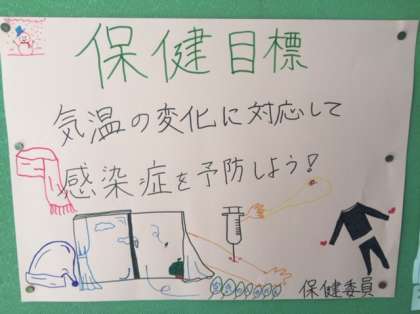 保健目標
気温の変化に対応して
感染症を予防しよう!
保健委員